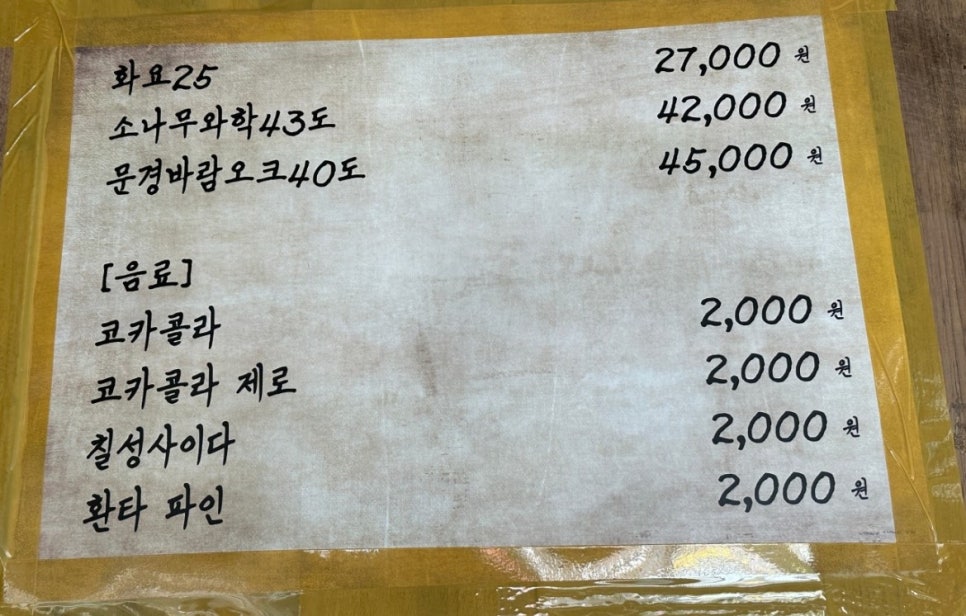 화요25 27,000 원
소나무와학43도 42,000 원
문경바람오크40도 45,000 원
[음료]
코카콜라 2,000 원
코카콜라 제로 2,000 원
칠성사이다 2,000 원
환타 파인 2,000 원